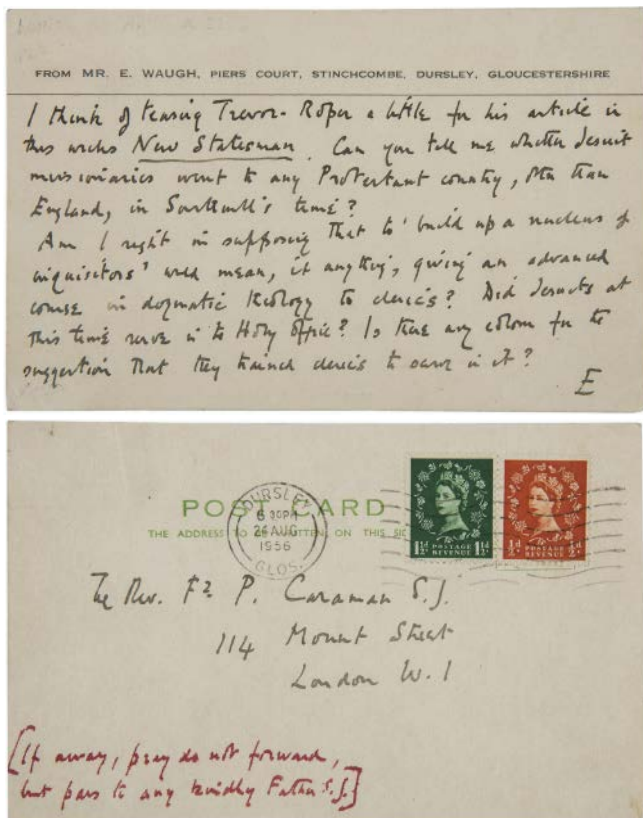 FROM MR. E. WAUGH, PIERS COURT, STINCHCOMBE, DURSLEY, GLOUCESTERSHIRE
I think of teasing Trevor-Roper a little for his article in
this weeks New Statesman. Can you tell me whether Jesuit
missionaries went to any Protestant country, other than
England, in Southwell's time?
Am I right in supposing that to 'build up a nucleus of
inquisitors' would mean, if anything, giving an advanced
course in dogmatic theology to clerics? Did Jesuits at
this time serve in the Holy Office? Is there any colour for the
suggestion that they trained clerics to serve in it?
E
POSTCARD
THE ADDRESS TO BE WRITTEN ON THIS SIDE
DURSLEY
6 30PM
24 AUG
1956
GLOS.
1½d POSTAGE REVENUE 1½d
½d POSTAGE REVENUE ½d
The Rev. Fr P. Caraman S.J.
114 Mount Street
London W.1
[If away, pray do not forward,
but pass to any kindly Father S.J.]